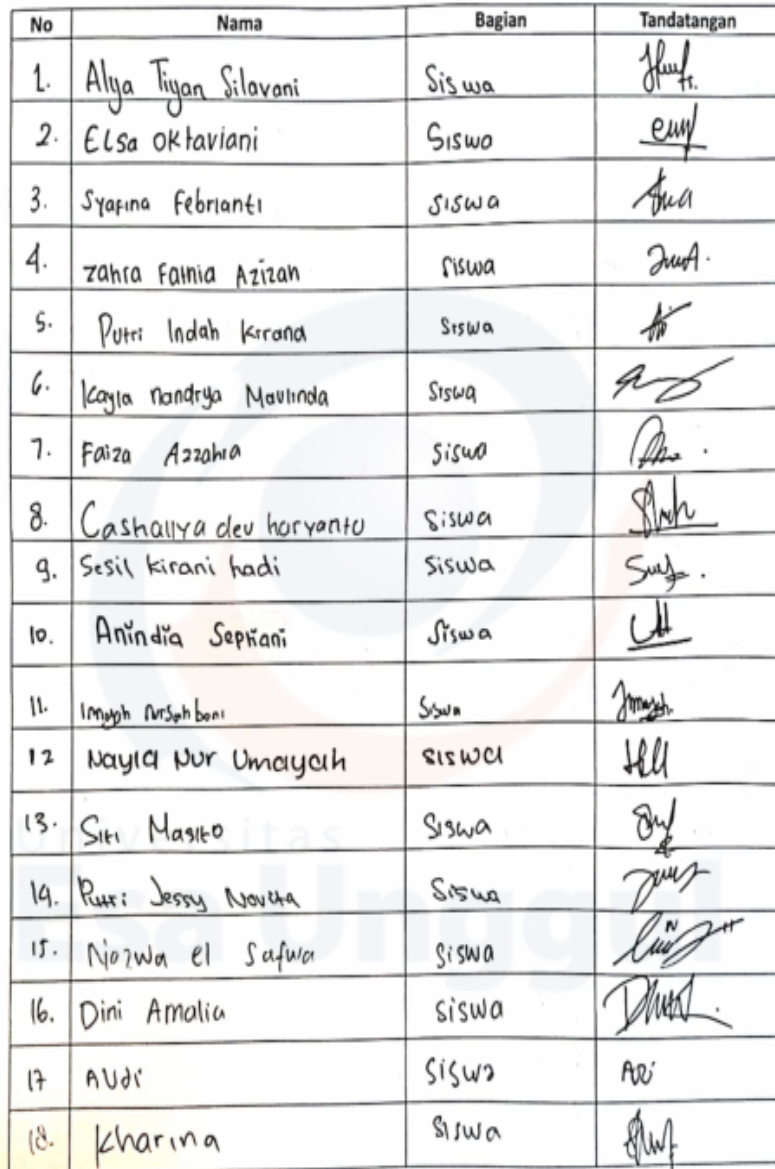 No Nama Bagian Tandatangan
1. Alya Tiyan Silavani Siswa
2. Elsa Oktaviani Siswa
3. Syafina Febrianti Siswa
4. Zahra Fathia Azizah Siswa
5. Putri Indah Kirana Siswa
6. Kayla Nandrya Maulinda Siswa
7. Faiza Azzahra Siswa
8. Cashallya dev haryanto Siswa
9. Sesil kirani hadi Siswa
10. Anindia Septiani Siswa
11. Siswa
12 Nayla Nur Umayah Siswa
13. Siti Masito Siswa
14. Putri Jessy Novita Siswa
15. Najwa el Safwa Siswa
16. Dini Amalia Siswa
17 Audi Siswa
18. Kharina Siswa
Universitas
Esa Unggul